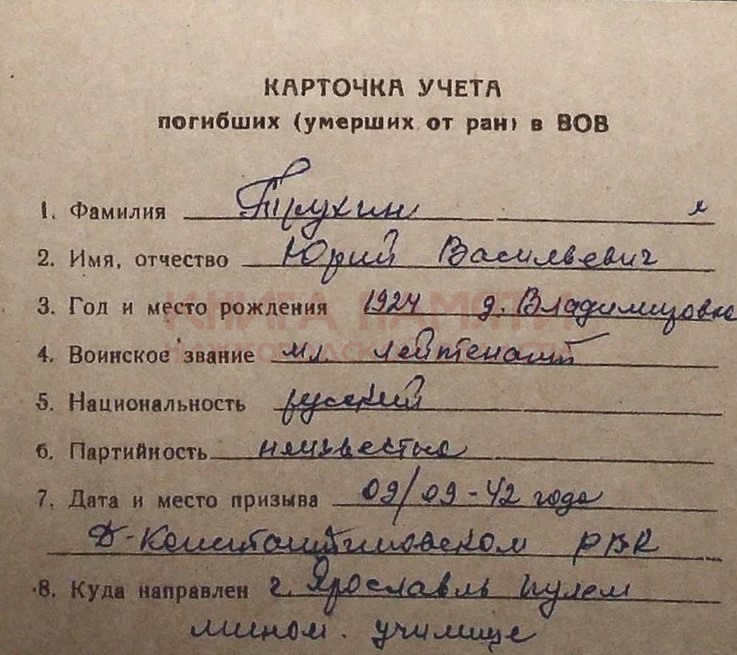 КАРТОЧКА УЧЕТА
погибших (умерших от ран) в ВОВ
1. Фамилия Трухин
2. Имя, отчество Юрий Васильевич
3. Год и место рождения 1924 д. Владимировка
КНИГА ПАМЯТИ
4. Воинское звание мл. лейтенант
5. Национальность русский
6. Партийность неизвестна
7. Дата и место призыва 09/09-42 года
Д-Константиновском РВК
8. Куда направлен г. Ярославль пулем
мином. училище